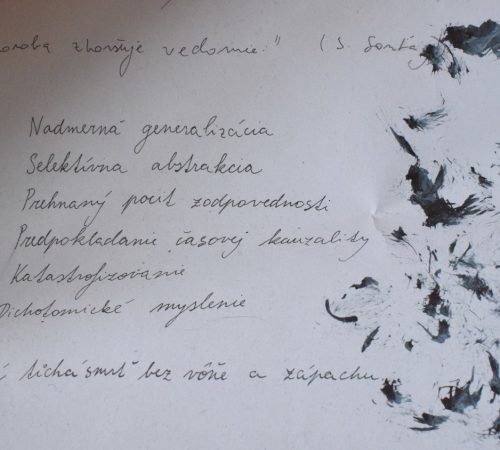 oroba zhoršuje vedomie." (S. Sontag
Nadmerná generalizácia
Selektívna abstrakcia
Prehnaný pocit zodpovednosti
Predpokladanie časovej kauzality
Katastrofizovanie
Dichotomické myslenie
tichá smrť bez vône a zápachu